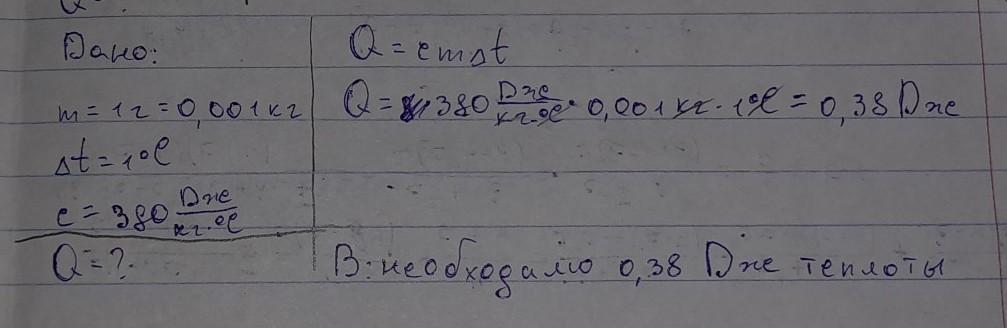 Дано:
m = 1 г = 0,001 кг
Δt = 1°C
c = 380 Дж/кг·°C
Q = ?
Q = cmΔt
Q = 380 Дж/кг·°C · 0,001 кг · 1°C = 0,38 Дж
В: необходимо 0,38 Дж теплоты